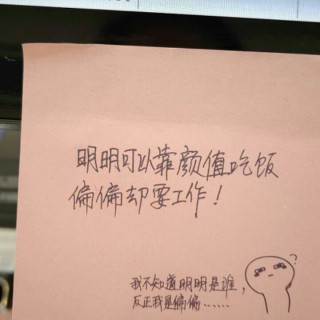 明明可以靠颜值吃饭
偏偏却要工作！
我不知道明明是谁，
反正我是偏偏......
?